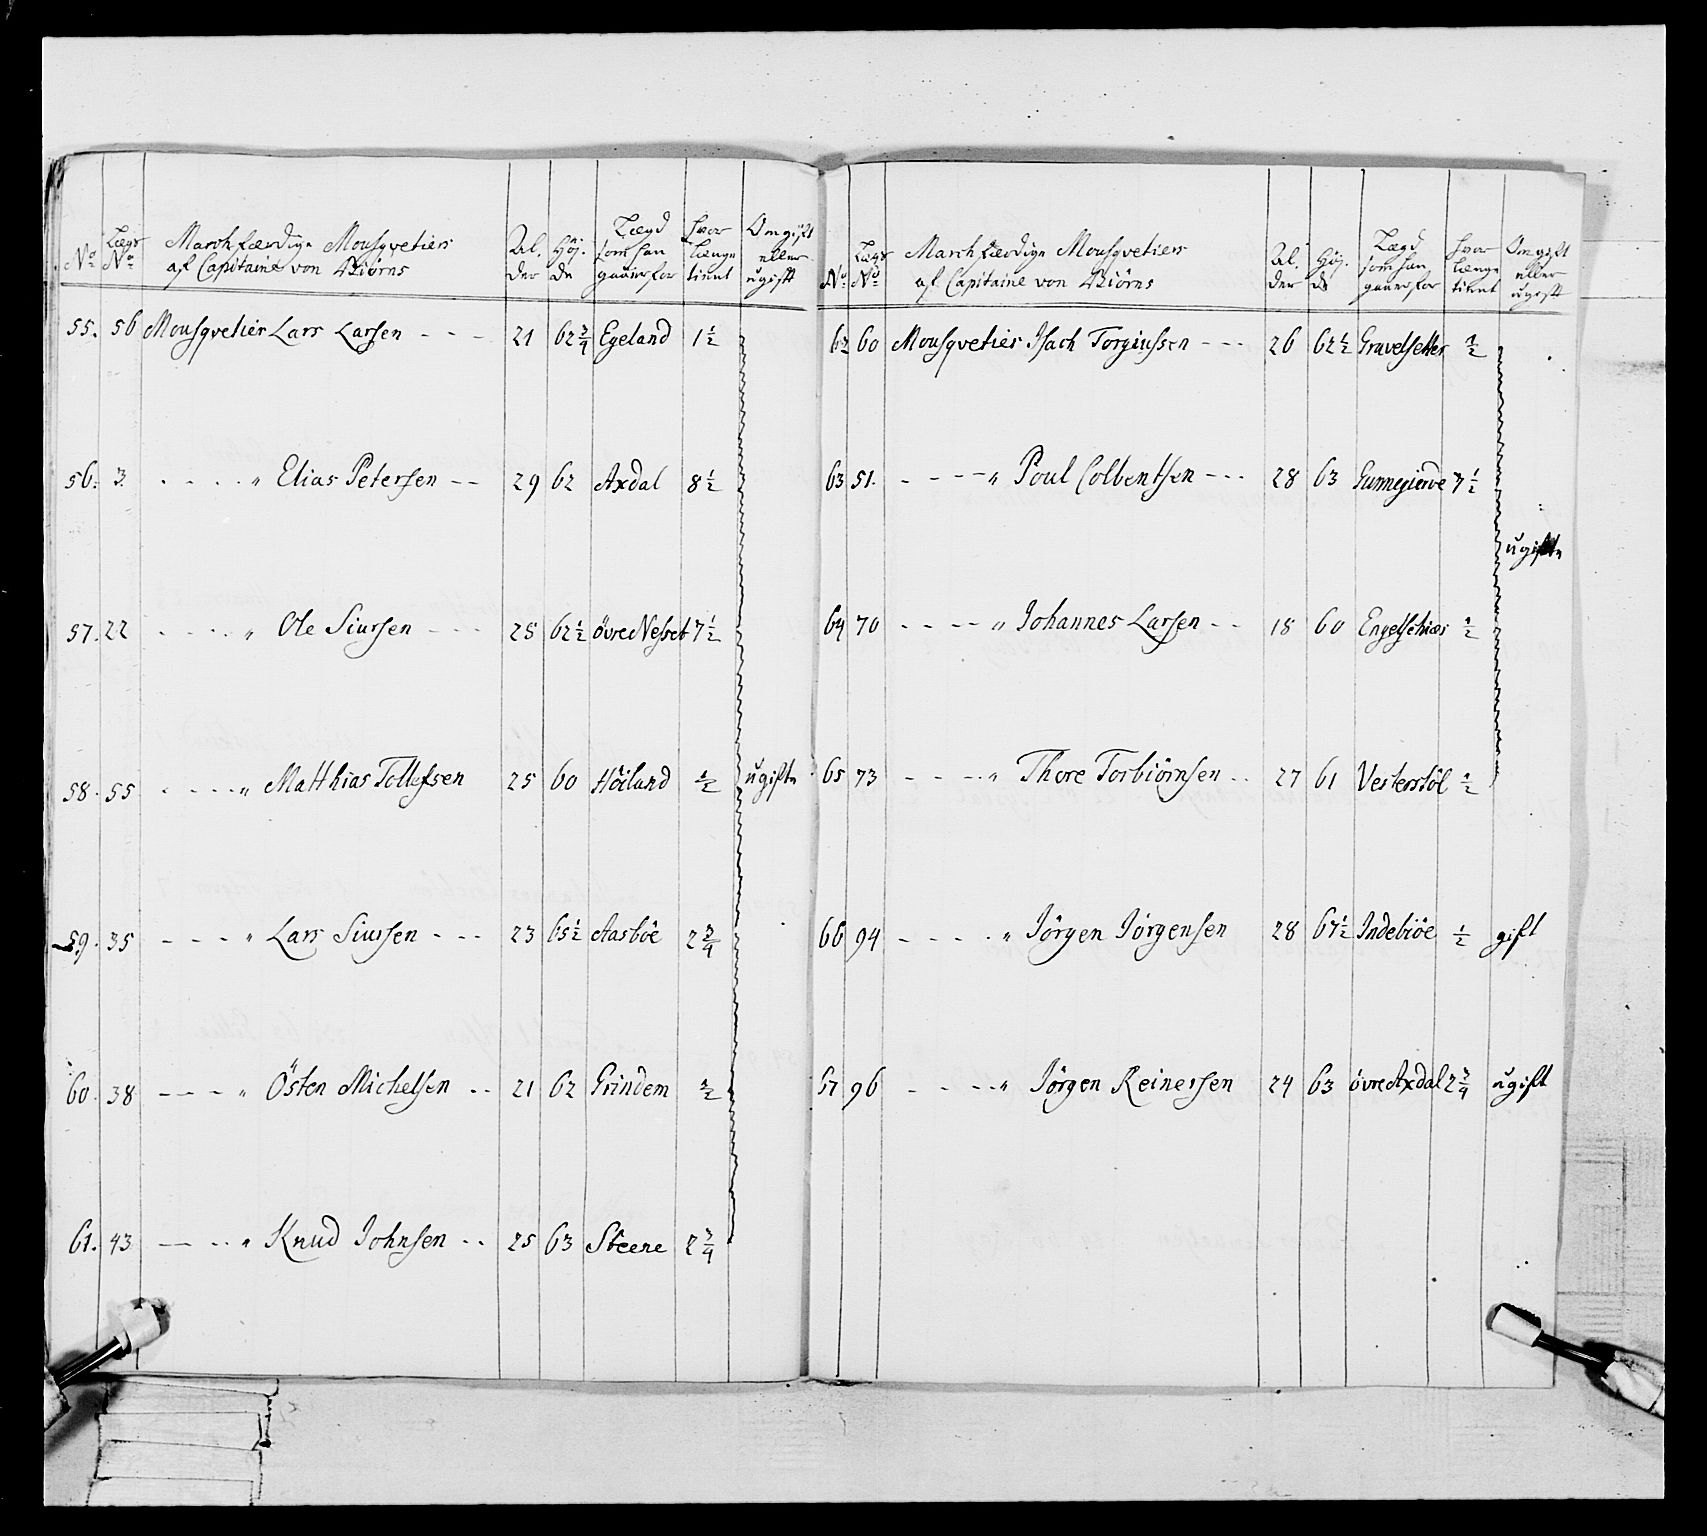 No Lægs No March færdige Mousqvetiers af Capitaine von Biörns Al. der Höj. de Lægd som han gaaer for hvor længe tient Om gift eller ugift
55. 56 Mousqvetier Lars Larsen - - - 21 62 3/4 Egeland 1 1/2
56. 3. . . . . " Elias Petersen - - 29 62 Axdal 8 1/2
57. 22 - . . . " Ole Siursen - - - 25 62 1/2 övre Nesset 7 1/2
58. 55 . . . . " Matthias Tollefsen 25 60 Höiland 1/2 ugifte
59. 35 - - - " Lars Siursen - - - 23 65 1/2 Aasböe 2 3/4
60. 38 - - - " Östen Michelsen - - 21 62 Grindem 1/2
61. 43 - - . . " Knud Johnsen - - 25 63 Steene 2 3/4
No Lægs No March færdige Mousqvetiers af Capitaine von Biörns Al. der Höj. de Lægd som han gaaer for hvor længe tient Om gift eller ugift
62 60 Mousqvetier Isach Torgiussen - - - 26 62 1/2 Gravelsetter 1/2
63 51. - - - - " Poul Colbentsen - - - 28 63 Gunnegierde 7 1/2
ugifte
64 70 - - - - " Johannes Larsen - - 18 60 Engelschiær 1/2
65 73 - - - - " Thore Torbiörnsen - - 27 61 Vesterstöl 1/2
66 94 - - - - " Jörgen Jörgensen 28 67 1/2 Indebröe 1/2 gift
67 96 - - - - " Jörgen Reinersen 24 63 övre Axdal 2 3/4 ugift